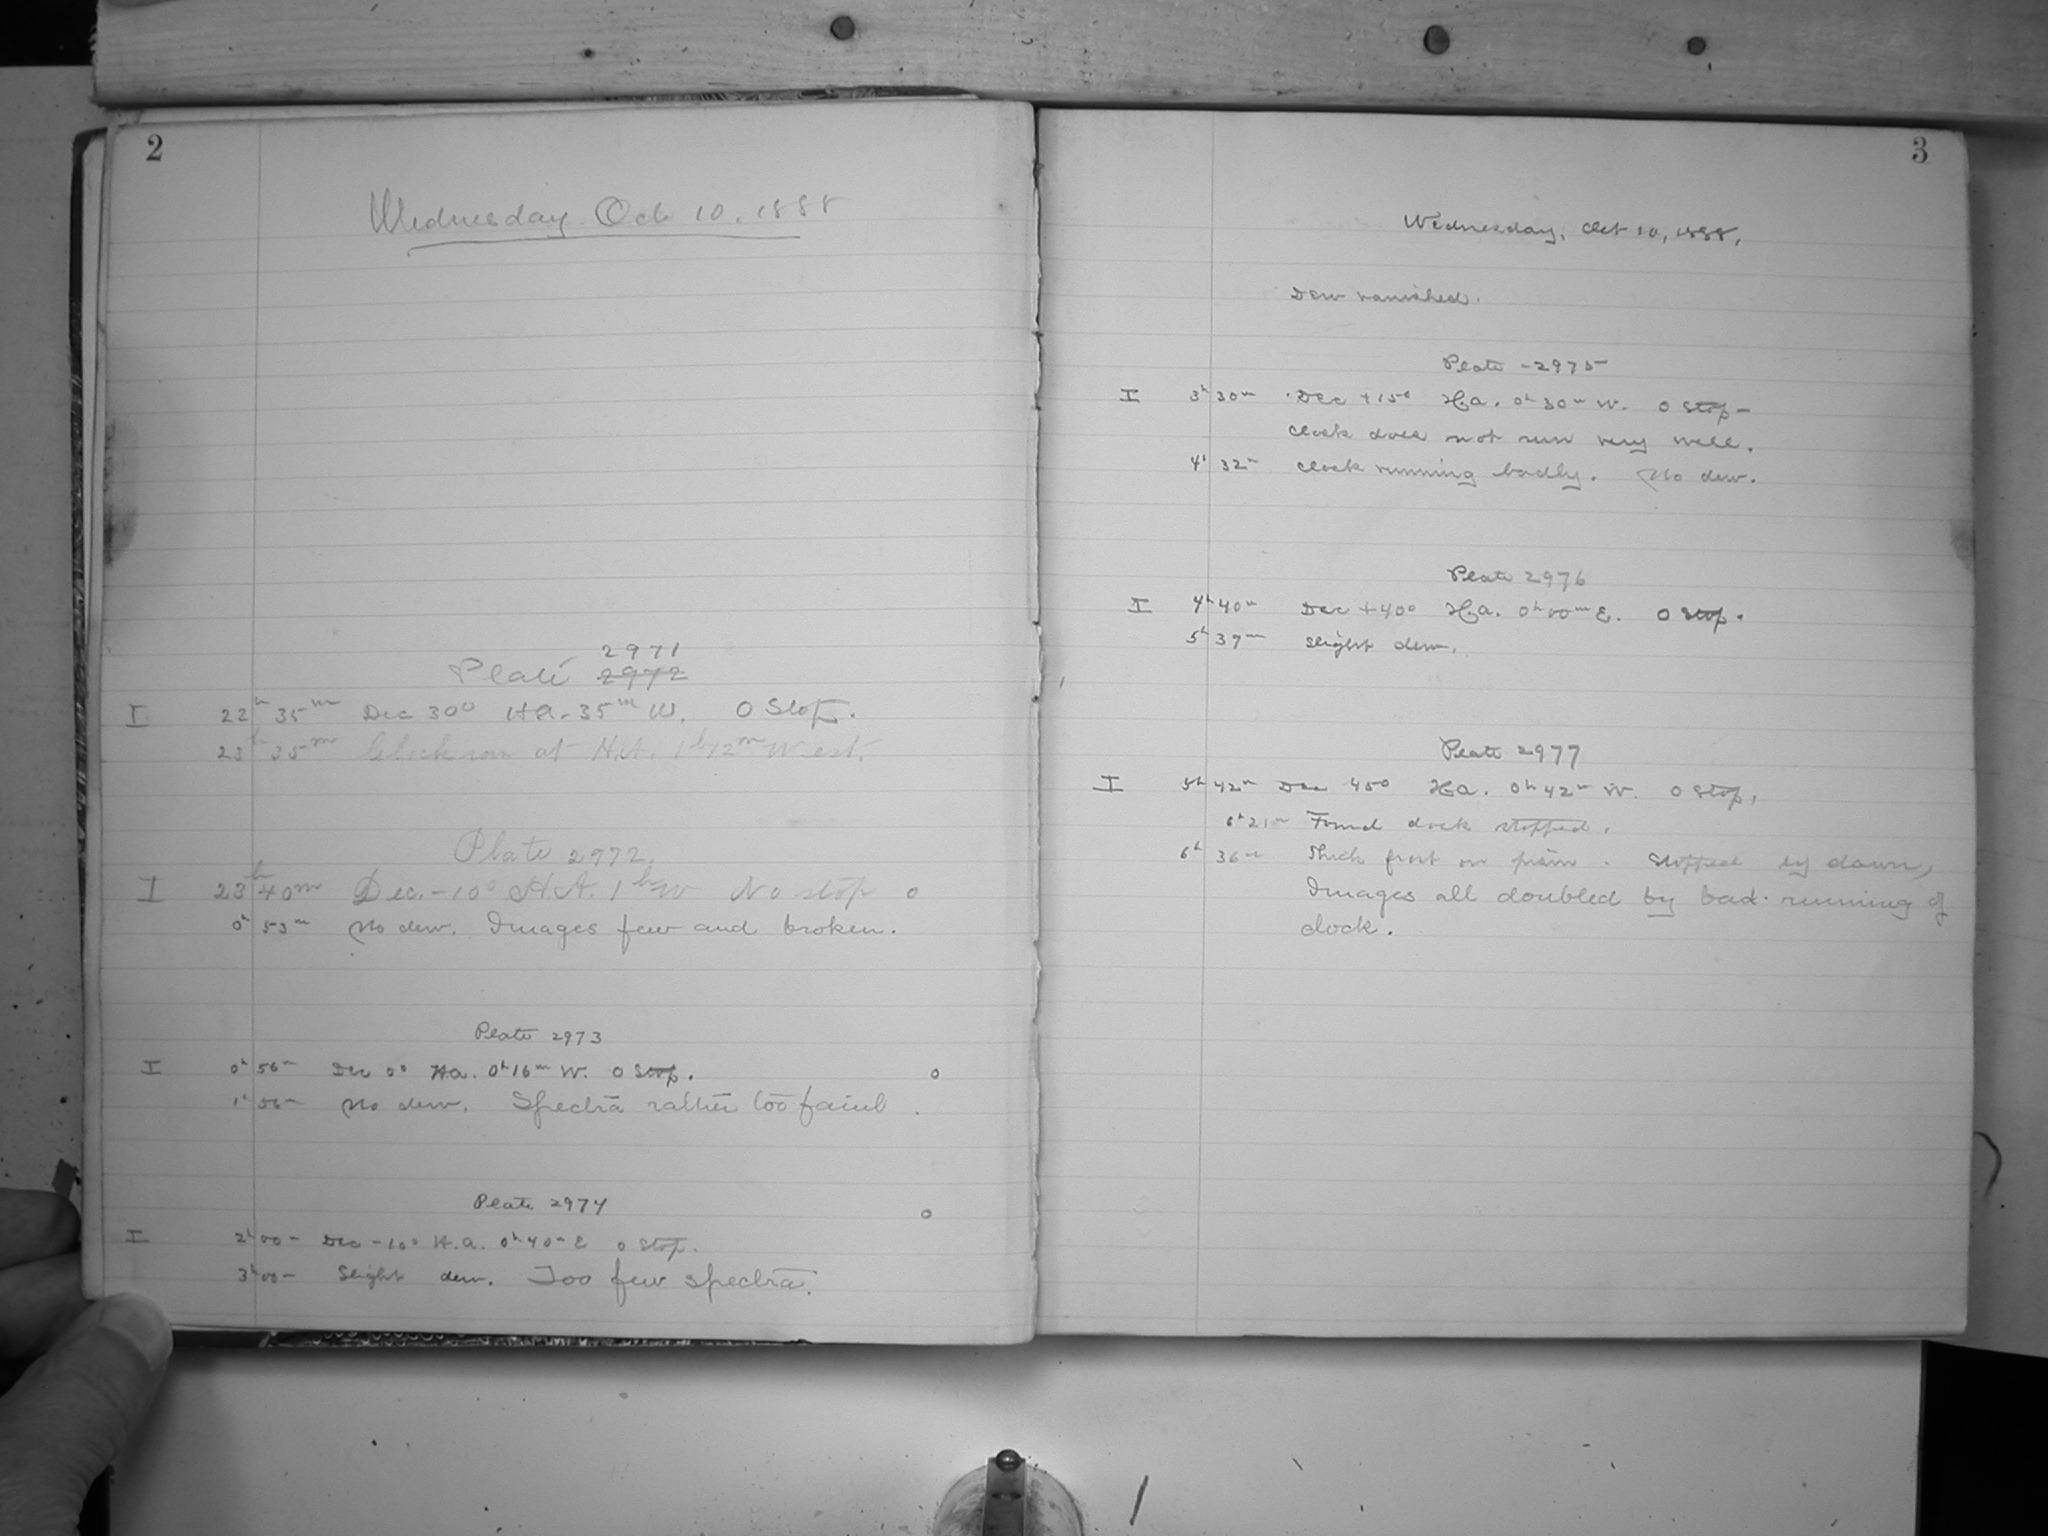 2
Wednesday Oct 10. 1888
2971
Plate 2972
I 22h 35m Dec 30° H.A. 35m W. 0 Stop.
23h 35m Clock ran at H.A. 1h 12m West.
Plate 2972.
I 23h 40m Dec. -10° H.A. 1h W No stop o
0h 53m No dew. Images few and broken.
Plate 2973
I 0h 56m Dec 0° H.a. 0h 16m W. 0 Stop. o
1h 56m No dew. Spectra rather too faint.
Plate 2974 o
I 2h 00m Dec -10° H.a. 0h 40m E 0 Stop.
3h 00m Slight dew. Too few spectra.
3
Wednesday, Oct 10, 1888.
Dew vanished.
Plate -2975
I 3h 30m Dec +15° H.a. 0h 30m W. 0 Stop-
Clock does not run very well.
4h 32m Clock running badly. No dew.
Plate 2976
I 4h 40m Dec +40° H.a. 0h 00m E. 0 Stop.
5h 39m Slight dew.
Plate 2977
I 5h 42m Dec 45° H.a. 0h 42m W. 0 Stop.
6h 21m Found clock stopped.
6h 36m Thick frost on prism. Stopped by dawn,
Images all doubled by bad running of
clock.